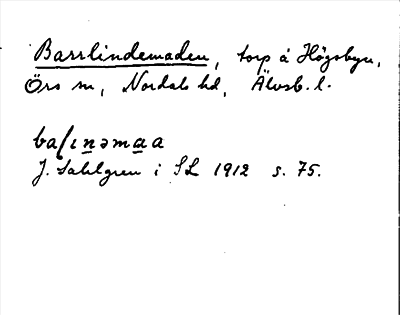 Barrlindemaden, torp å Högsbyn,
Örs sn, Nordals hd, Älvsb. l.
baſın̲əma̲a
J. Sahlgren i SL 1912 s. 75.